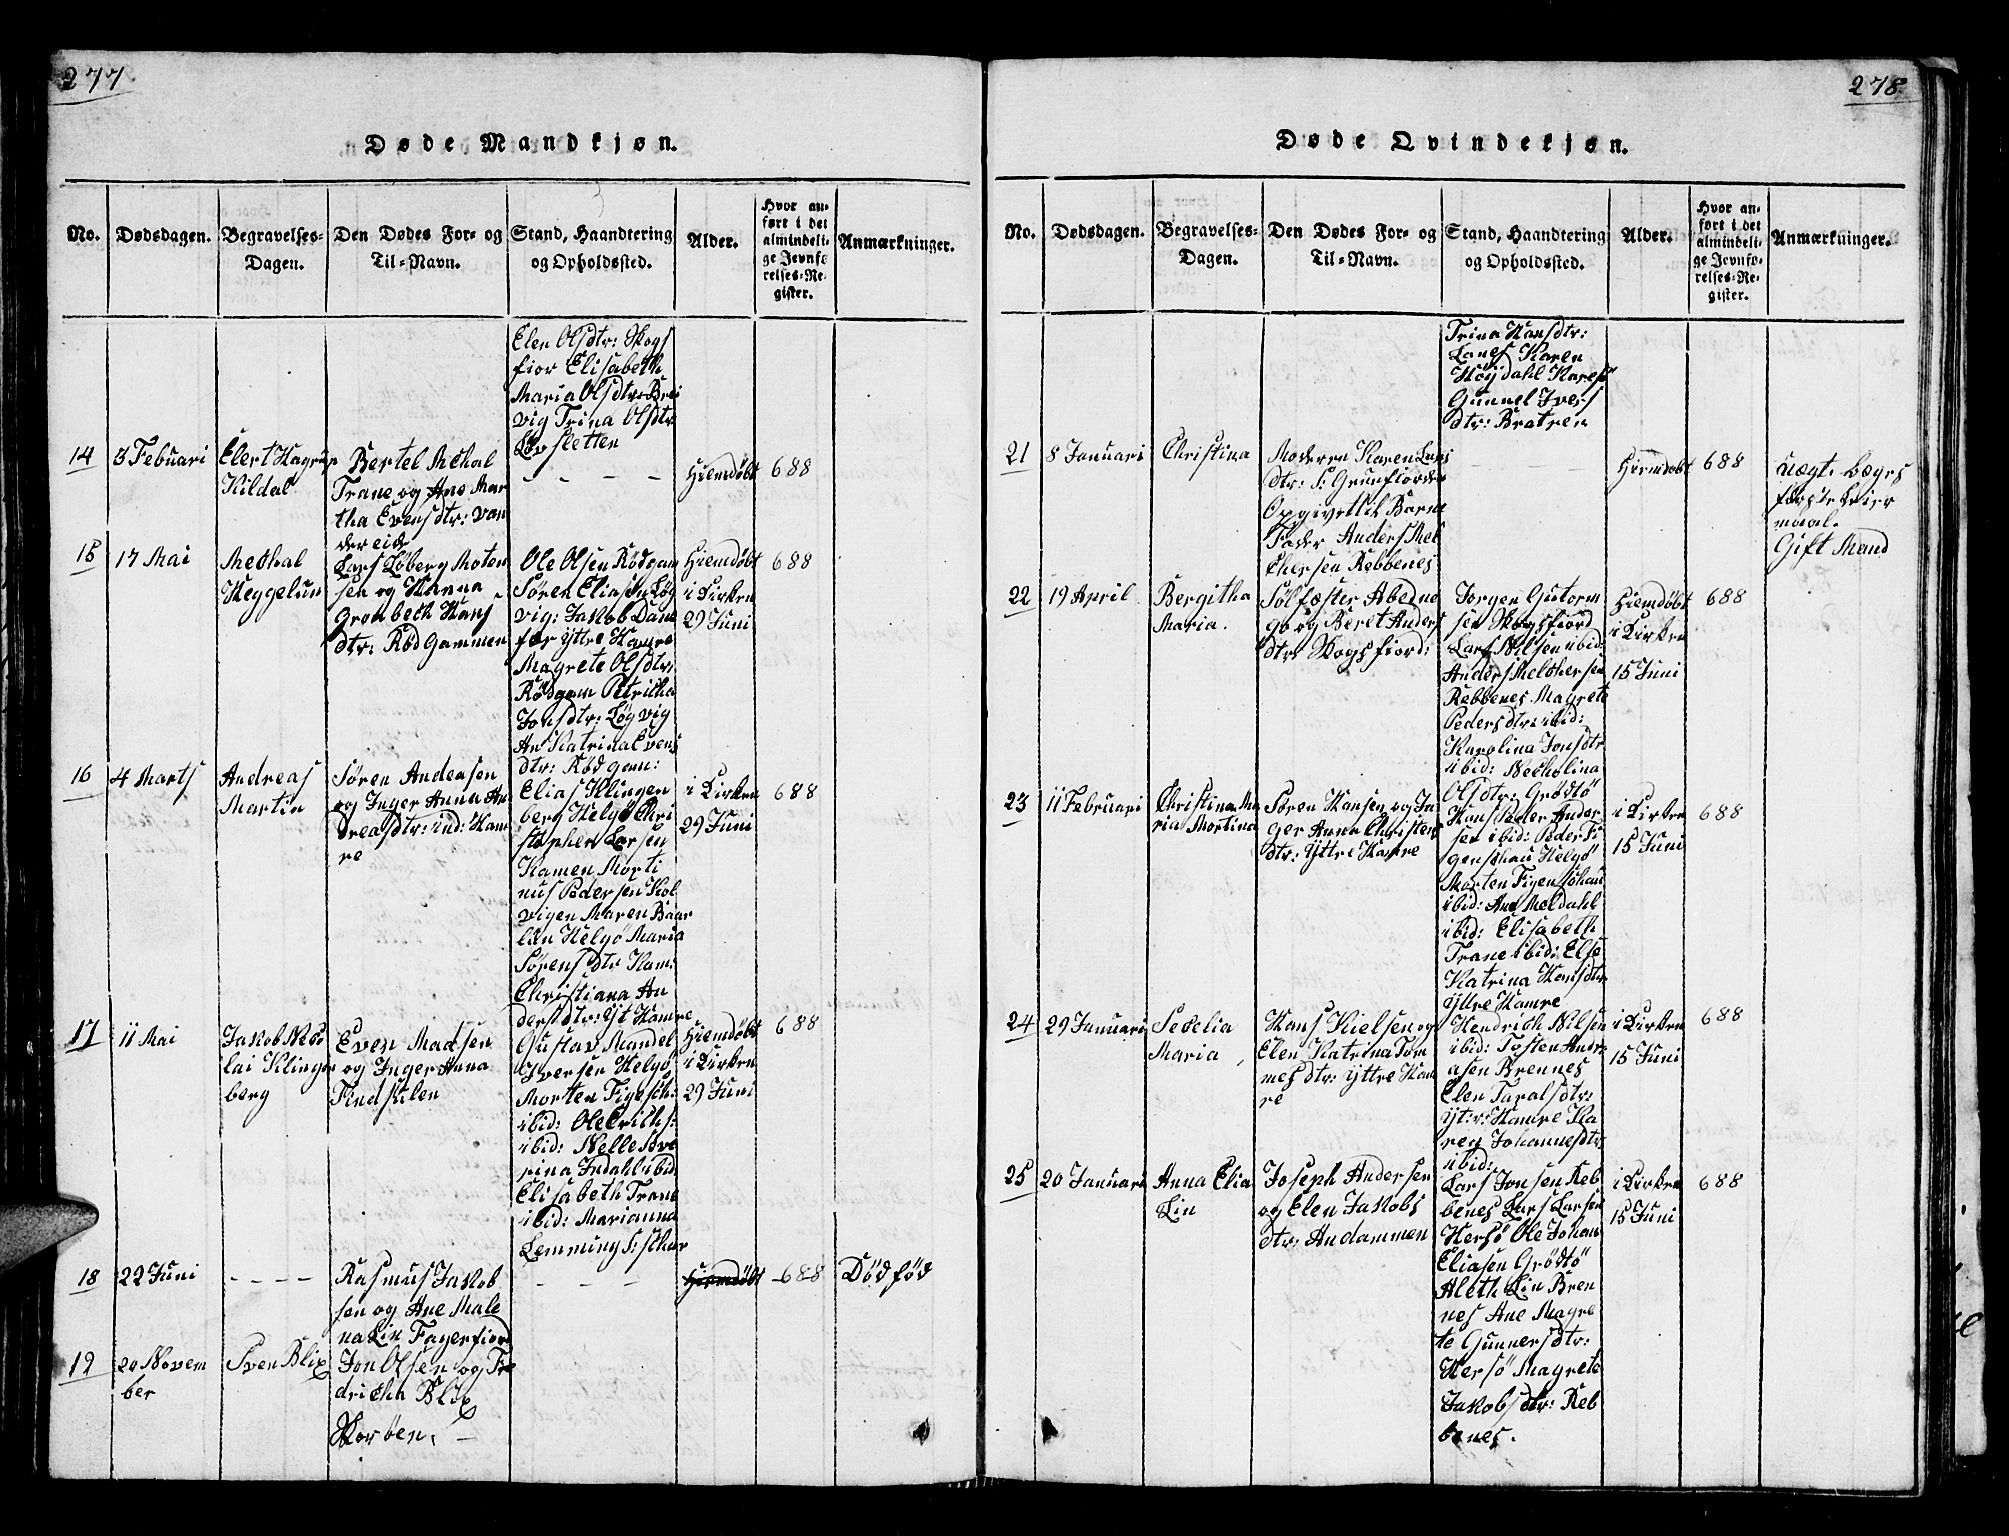 277
Døde Mandkjøn.
No.
Dødsdagen.
Begravelses-
Dagen.
Den Dødes For- og
Til-Navn.
Stand, Haandtering
og Opholdssted.
Alder.
Hvor an-
ført i det
almindeli-
ge Jevnfø-
relses-Re-
gister.
Anmærkninger.
Elen Olsdtr: Skogs
fior Elisabeth
Maria Olsdtr: Brei
vig Trina Olsdtr
Løvsletten
14
3 Febuari
Elert Hagrup
Kildal
Bertel Mechal
Trane og Ane Mar
tha Evensdtr: Van
dereide
- - - -
Hiemdøbt
688
15
17 Mai
Mechal
Heggelun
Lars Løberg Moten
sen og Hanna
Grønbech Hans
dtr: Rød Gammen
Ole Olsen Rødgam
Søren Eliasen Løg
vig: Jakob Dane
fer Yttre Hamre
Magrete Olsdtr:
Rødgam Petricha
Jonsdtr: Løgvig
An Katrina Evens
dtr: Rødgam:
Hiemdøbt
i Kirken
29 Juni
688
16
4 Marts
Andreas
Martin
Søren Andeasen
og Inger Anna An
dreasdtr: ind: Ham
re
Elias Klingen
berg Helgø Chri
stopher Larsen
Hamen Morti
nus Pedersen Kol
vigen Maren Baar
lin Helgø Maria
Sørensdtr Ham:
Christiana An
dersdtr: Yt Hamre
i Kirken
29 Juni
688
17
11 Mai
Jakob Nico
lai Klingen
berg
Even Madsen
og Inger Anna
Findsulen
Gustav Mandel
Iversen Helgø
Morten Figesch:
ibid: Ole Erichs:
ibid: Nelle Seve
rina Indahl ibid
Elisabeth Trane
ibid: Marianna
Lemming S: sthar
Hiemdøbt
i Kirken
29 Juni
688
18
22 Juni
- - - -
Rasmus Jakob
sen og Ane Male
na Lin Fagerfiord
- - - -
Hiemdøbt
688
Dødfød
19
20 Novem
ber
Sven Blix
Jon Olsen og Fre
dricha Blix
Skorøen. -
278
Døde Qvindekjøn.
No.
Dødsdagen.
Begravelses-
Dagen.
Den Dødes For- og
Til-Navn.
Stand, Haandtering
og Opholdssted.
Alder.
Hvor an-
ført i det
almindeli-
ge Jevnfø-
relses-Re-
gister.
Anmærkninger.
Trina Hansdtr:
Lanes Karen
Høydahl Karesø
Gunnel Ivers
dtr: Bratren
21
8 Januari
Christina
Moderen Karen Lars
dtr: S: Grunfiorden
Opgivet til Barne
Fader Anders Mel
chersen Rebbenes
Hiemdøbt
688
Uægt. Begges
første Leier
maal.
Gift Mand
22
19 April
Bergitha
Maria.
Sølfæster Abedne
go og Beret Anders
dtr: Skogsfiord:
Jorgen Gutorm
sen Skogsfiord
Lars Nilsen ibid:
Anders Melchersen
Rebbenes Magrete
Pedersdtr: ibid:
Karolina Jonsdtr
ibid: Necholina
Olsdtr: Grødtø
Hiemdøbt
i Kirken
15 Juni
688
23
11 Februari
Christina Ma
ria Mortina
Søren Hansen og In
ger Anna Christens
dtr: Yttre Hamre
Hans Peder Ander
sen ibid: Peder Fi
genschau Helgø
Morten Figenschau
ibid: Ane Meldahl
ibid: Elisabeth
Trane ibid: Else
Katrina Hansdtr
Yttre Hamre
i Kirken
15 Juni
688
24
29 Januari
Sedelia
Maria
Hans Kielsen og
Elen Katrina Tom
mesdtr: Yttre Ham
re
Hendrich Nilsen
ibid: Tosten Andr
asen Brennes
Elen Taralsdtr:
Yt:r: Hamre Ka
ren Johannesdtr
ibid:
i Kirken
15 Juni
688
25
20 Januari
Anna Elia
Lin
Joseph Andersen
og Elen Jakobs
dtr: Andammen
Lars Jonsen Reb
benes Lars Larsen
Hersø Ole Johan
Eliasen Grødtø
Aleth Lin Bren
nes Ane Magre
te Gunnersdtr:
Hersø Magrete
Jakobsdtr: Reb
benes.
i Kirken
15 Juni
688